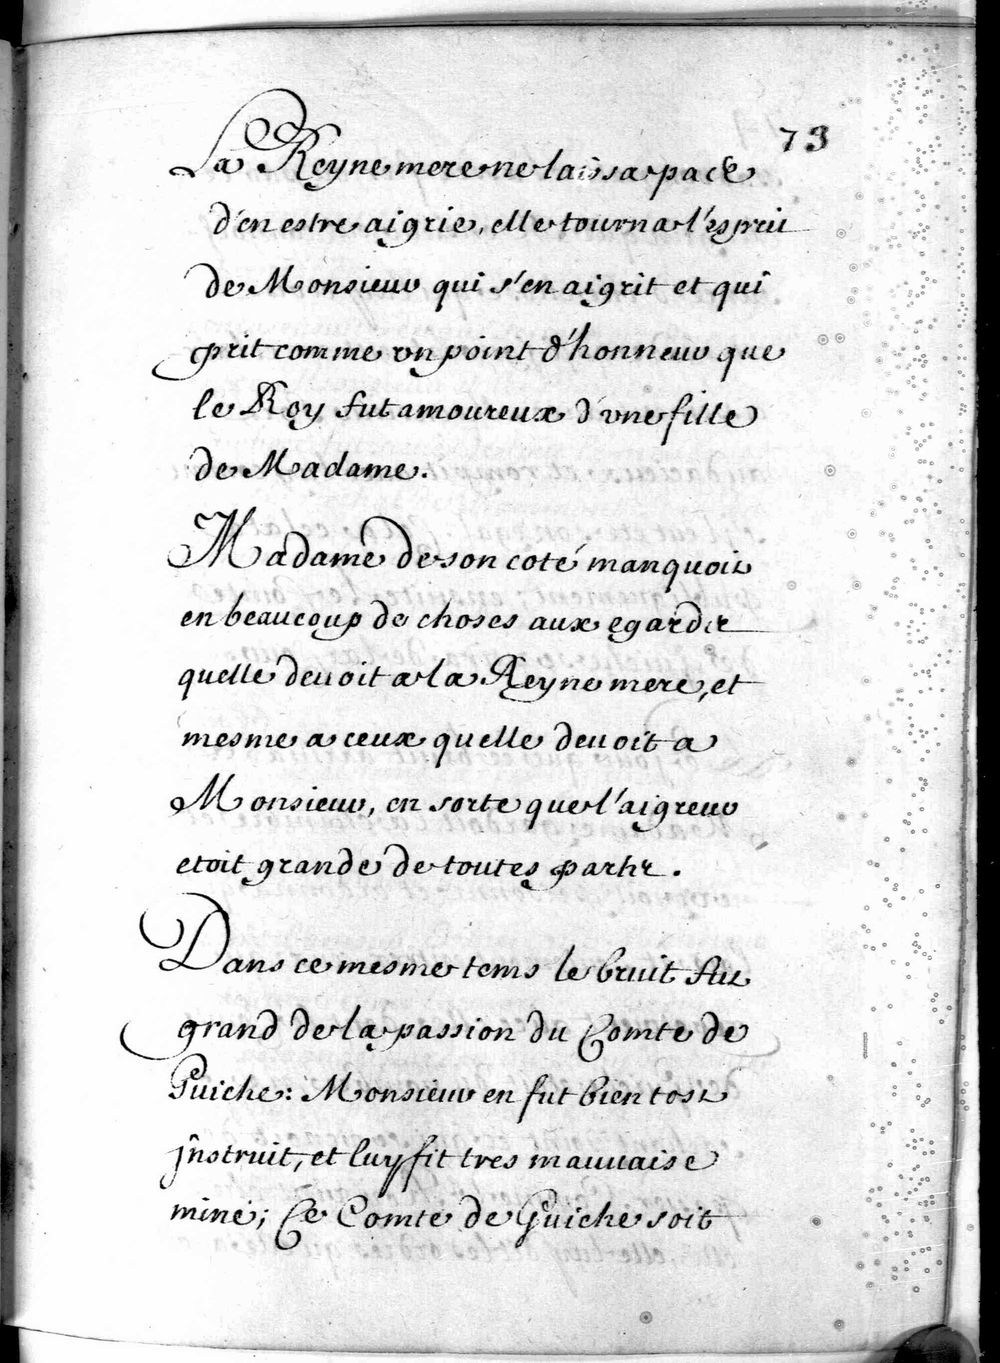 73
La Reyne mere ne laissa pas
d'en estre aigrie, elle tourna l'esprit
de Monsieur qui s'en aigrit et qui
prit comme vn point d'honneur que
le Roy fut amoureux d'vne fille
de Madame.
Madame de son coté manquoit
en beaucoup de choses aux egards
quelle deuoit a la Reyne mere, et
mesme a ceux quelle deuoit a
Monsieur, en sorte que l'aigreur
etoit grande de toutes parts.
Dans ce mesme tems le bruit fut
grand de la passion du Comte de
Guiche: Monsieur en fut bien tost
jnstruit, et luy fit tres mauuaise
mine; Ce Comte de Guiche soit